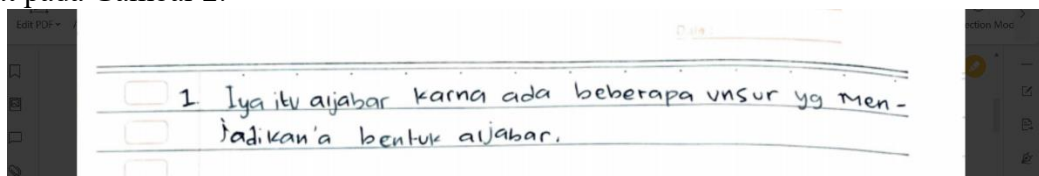 Edit PDF
1 Iya itu aljabar karna ada beberapa unsur yg men-
jadikan'a bentuk aljabar.